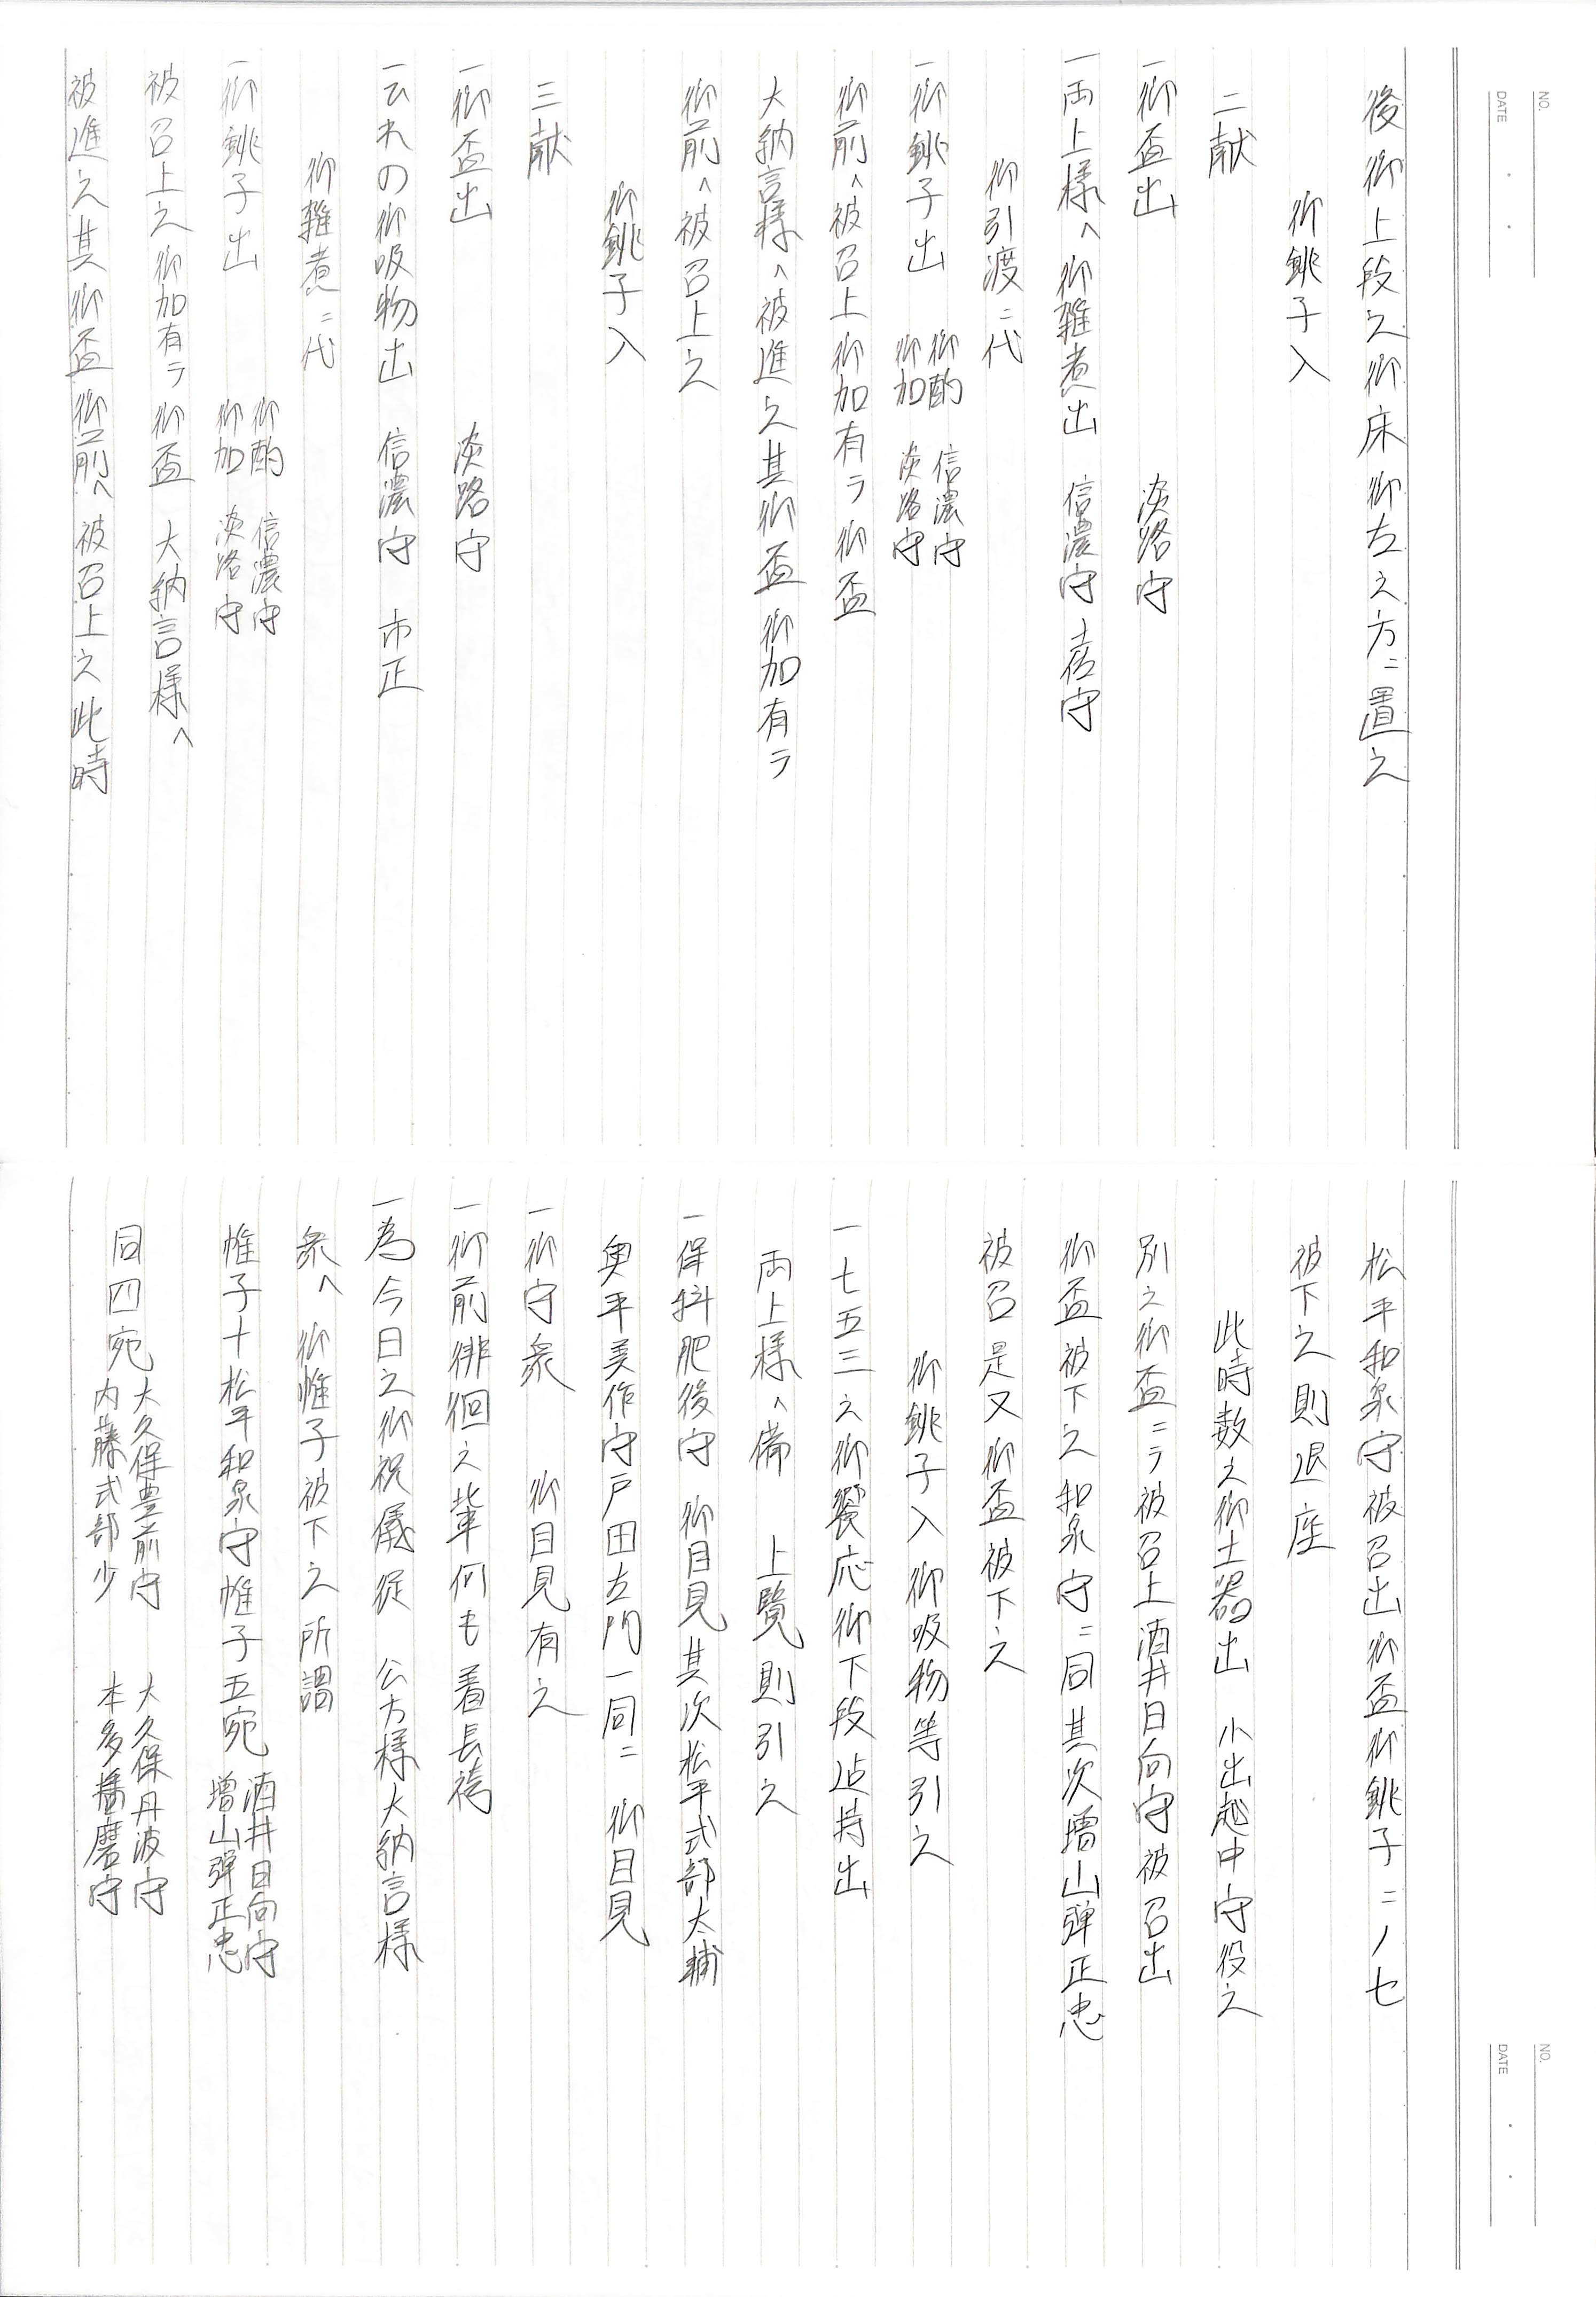 NO.
DATE
後御上段之御床御左之方ニ置之
御銚子入
二献
一御盃出 淡路守
一両上様ヘ御雑煮出 信濃守 土佐守
御引渡ニ代
一御銚子出 御酌 信濃守
御加 淡路守
御前ヘ被召上御加有テ御盃
大納言様ヘ被進之其御盃御加有テ
御前ヘ被召上之
御銚子入
三献
一御盃出 淡路守
一ひれの御吸物出 信濃守 市正
御雑煮ニ代
一御銚子出 御酌 信濃守
御加 淡路守
被召上之御加有テ御盃 大納言様ヘ
被進之其御盃御前ヘ被召上之此時
NO.
DATE
松平和泉守被召出御盃御銚子ニノ七
被下之則退座
此時数之御土器出 小出越中守役之
別之御盃ニテ被召上酒井日向守被召出
御盃被下之和泉守ニ同其次増山弾正忠
被召是又御盃被下之
御銚子入御吸物等引之
一七五三之御饗応御下段迠持出
両上様ヘ備 上覧則引之
一保科肥後守 御目見其次松平式部太輔
奥平美作守戸田左門一同ニ 御目見
一御守衆 御目見有之
一御前徘徊之輩何も着長袴
一為今日之御祝儀従 公方様大納言様
衆ヘ 御帷子被下之所謂
帷子十松平和泉守帷子五宛 酒井日向守
増山弾正忠
同四宛 大久保豊前守 大久保丹波守
内藤式部少 本多播磨守